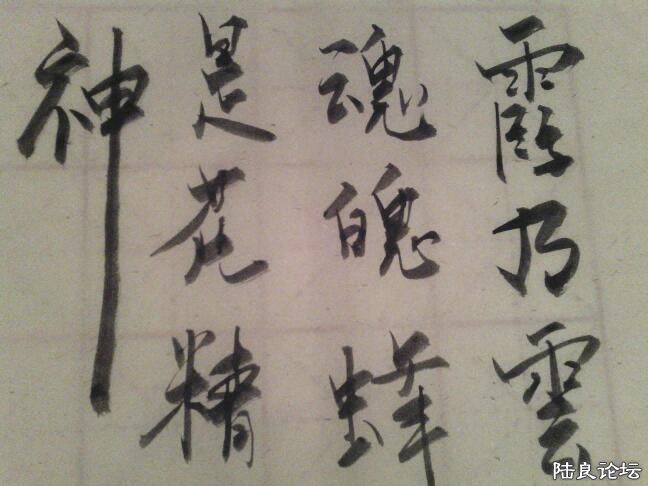 霞乃雲
魂魄蜂
是花精
神
陆良论坛